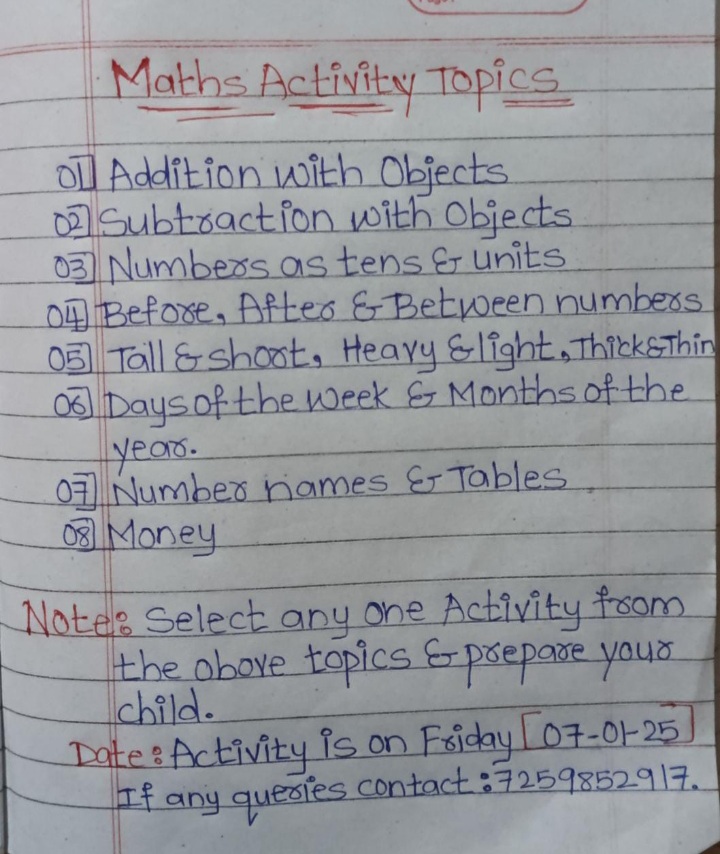 Maths Activity Topics
01] Addition with Objects
02] Subtraction with Objects
03] Numbers as tens & units
04] Before, After & Between numbers
05] Tall & short, Heavy & light, Thick & Thin
06] Days of the week & Months of the
year.
07] Number names & Tables
08] Money
Note: Select any one Activity from
the above topics & prepare your
child.
Date: Activity is on Friday [07-01-25]
If any queries contact: 7259852917.